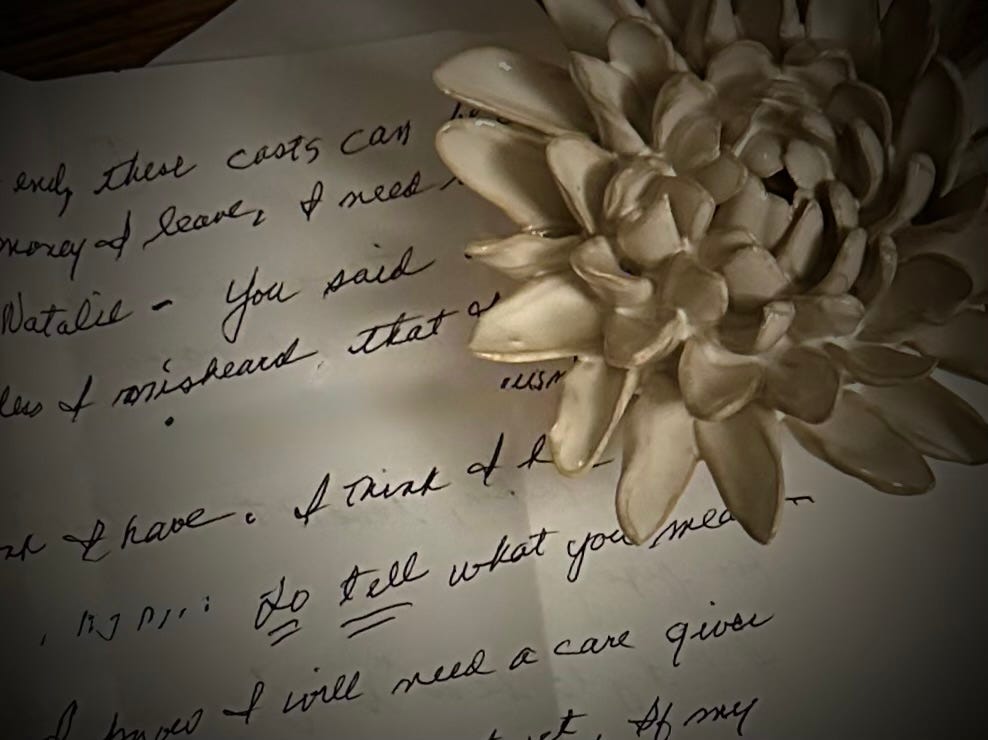 end, these costs can
money I leave, I need
Natalie - You said
I misheard, that I
I have. I think I
Do tell what you
I know I will need a care giver
If my